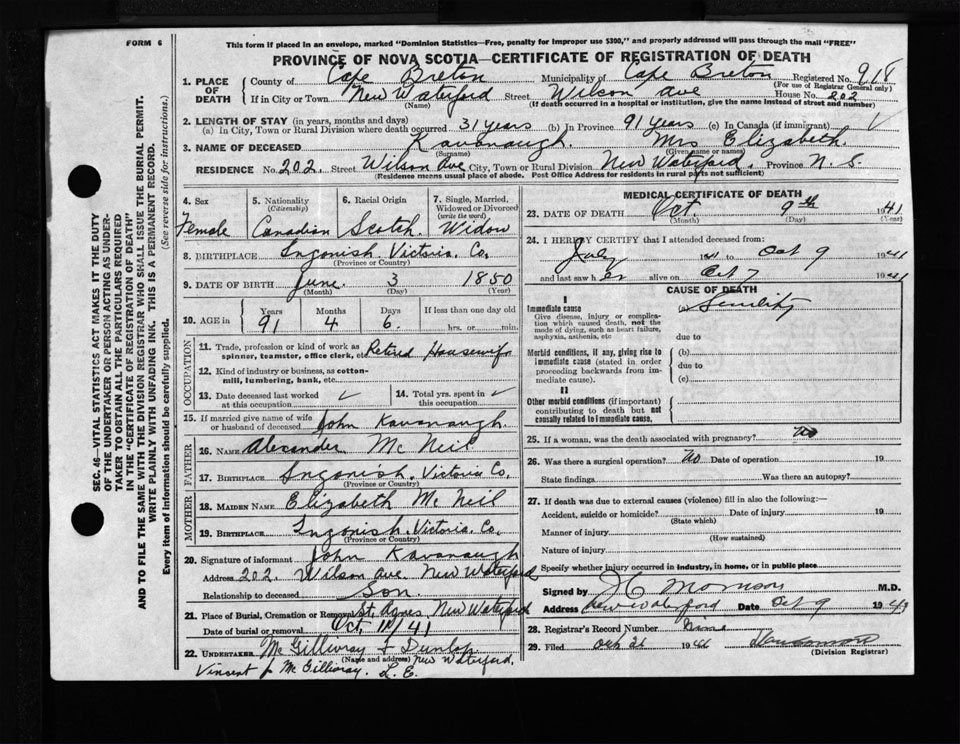 FORM 6
This form if placed in an envelope, marked "Dominion Statistics—Free, penalty for improper use $300," and properly addressed will pass through the mail "FREE"
PROVINCE OF NOVA SCOTIA—CERTIFICATE OF REGISTRATION OF DEATH
1. PLACE OF DEATH County of Cape Breton Municipality of Cape Breton Registered No. 918
(For use of Registrar General only)
If in City or Town New Waterford Street Wilson Ave House No. 202
(Name) (If death occurred in a hospital or institution, give the name instead of street and number)
2. LENGTH OF STAY (in years, months and days)
(a) In City, Town or Rural Division where death occurred 31 years (b) In Province 91 years (c) In Canada (if immigrant) ✓
3. NAME OF DECEASED Kavanaugh. Mrs Elizabeth.
(Surname) (Given name or names)
RESIDENCE No. 202. Street Wilson Ave City, Town or Rural Division New Waterford. Province N. S.
(Residence means usual place of abode. Post Office Address for residents in rural parts not sufficient)
4. Sex 5. Nationality (Citizenship) 6. Racial Origin 7. Single, Married, Widowed or Divorced (write the word)
Female Canadian Scotch. Widow
8. BIRTHPLACE Ingonish. Victoria. Co.
(Province or Country)
9. DATE OF BIRTH June. 3 1850
(Month) (Day) (Year)
10. AGE in Years Months Days If less than one day old
91 4 6. hrs. or min.
OCCUPATION
11. Trade, profession or kind of work as spinner, teamster, office clerk, etc. Retired Housewife
12. Kind of industry or business, as cotton-mill, lumbering, bank, etc.
13. Date deceased last worked at this occupation ✓ 14. Total yrs. spent in this occupation ✓
15. If married give name of wife or husband of deceased John Kavanaugh.
FATHER
16. NAME Alexander Mc Neil
17. BIRTHPLACE Ingonish. Victoria Co,
(Province or Country)
MOTHER
18. MAIDEN NAME Elizabeth Mc Neil
19. BIRTHPLACE Ingonish. Victoria. Co,
(Province or Country)
20. Signature of informant John Kavanaugh
Address 202. Wilson Ave. New Waterford
Relationship to deceased Son.
21. Place of Burial, Cremation or Removal St. Agnes New Waterford
Date of burial or removal Oct, 11/41
22. UNDERTAKER Mc Gillivray & Dunlop.
(Name and address) New Waterford.
Vincent J. Mc Gillivray. L. E.
MEDICAL CERTIFICATE OF DEATH
23. DATE OF DEATH Oct. 9th 1941
(Day) (Year)
24. I HEREBY CERTIFY that I attended deceased from:
July 1941 to Oct 9 1941
and last saw her alive on Oct 7 1941
CAUSE OF DEATH
I
Immediate cause (a) Senility
Give disease, injury or complication which caused death, not the mode of dying, such as heart failure, asphyxia, asthenia, etc
due to
Morbid conditions, if any, giving rise to immediate cause (stated in order proceeding backwards from immediate cause). (b)
due to
(c)
II
Other morbid conditions (if important) contributing to death but not causally related to immediate cause.
25. If a woman, was the death associated with pregnancy? No
26. Was there a surgical operation? No Date of operation 19
State findings Was there an autopsy?
27. If death was due to external causes (violence) fill in also the following:—
Accident, suicide or homicide? Date of injury 19
(State which)
Manner of injury
(How sustained)
Nature of injury
Specify whether injury occurred in industry, in home, or in public place
Signed by Morrison M.D.
Address New Waterford Date Oct 9 194
28. Registrar's Record Number
29. Filed Oct 1941
(Division Registrar)
SEC. 46—VITAL STATISTICS ACT MAKES IT THE DUTY
OF THE UNDERTAKER OR PERSON ACTING AS UNDER-
TAKER TO OBTAIN ALL THE PARTICULARS REQUIRED
IN THE "CERTIFICATE OF REGISTRATION OF DEATH"
AND TO FILE THE SAME WITH THE DIVISION REGISTRAR WHO SHALL ISSUE THE BURIAL PERMIT.
WRITE PLAINLY WITH UNFADING INK. THIS IS A PERMANENT RECORD.
Every item of information should be carefully supplied. (See reverse side for instructions.)